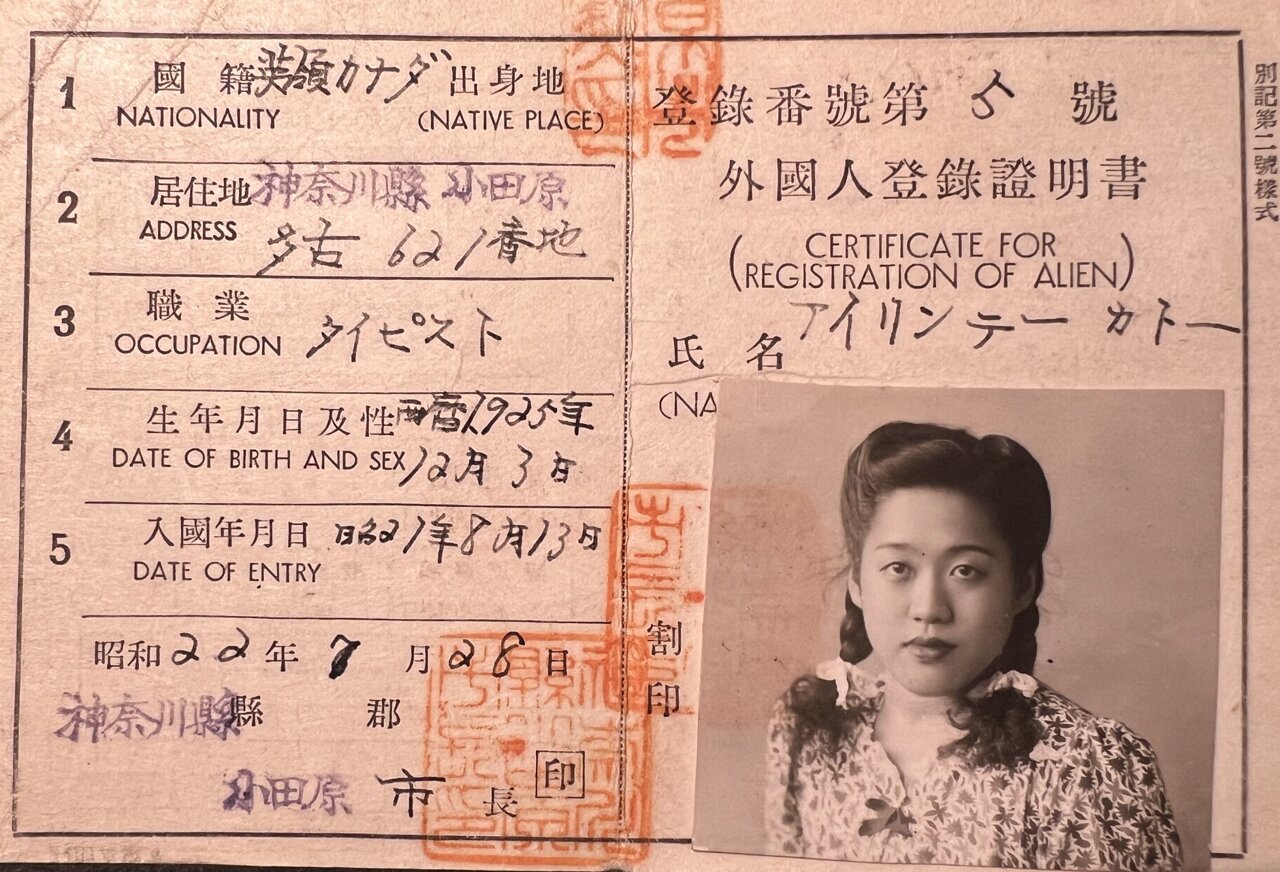 1 國籍 英領カナダ 出身地
NATIONALITY (NATIVE PLACE)
2 居住地 神奈川縣 小田原
ADDRESS 多古 621番地
3 職業
OCCUPATION タイピスト
4 生年月日及性 西暦1925年
DATE OF BIRTH AND SEX 12月3日
5 入國年月日 昭21年8月13日
DATE OF ENTRY
昭和22年7月28日
神奈川縣 縣 郡
小田原 市長 印
別記第二號樣式
登錄番號第5號
外國人登錄證明書
(CERTIFICATE FOR
REGISTRATION OF ALIEN)
アイリンテー カトー
氏名
(NA
割印